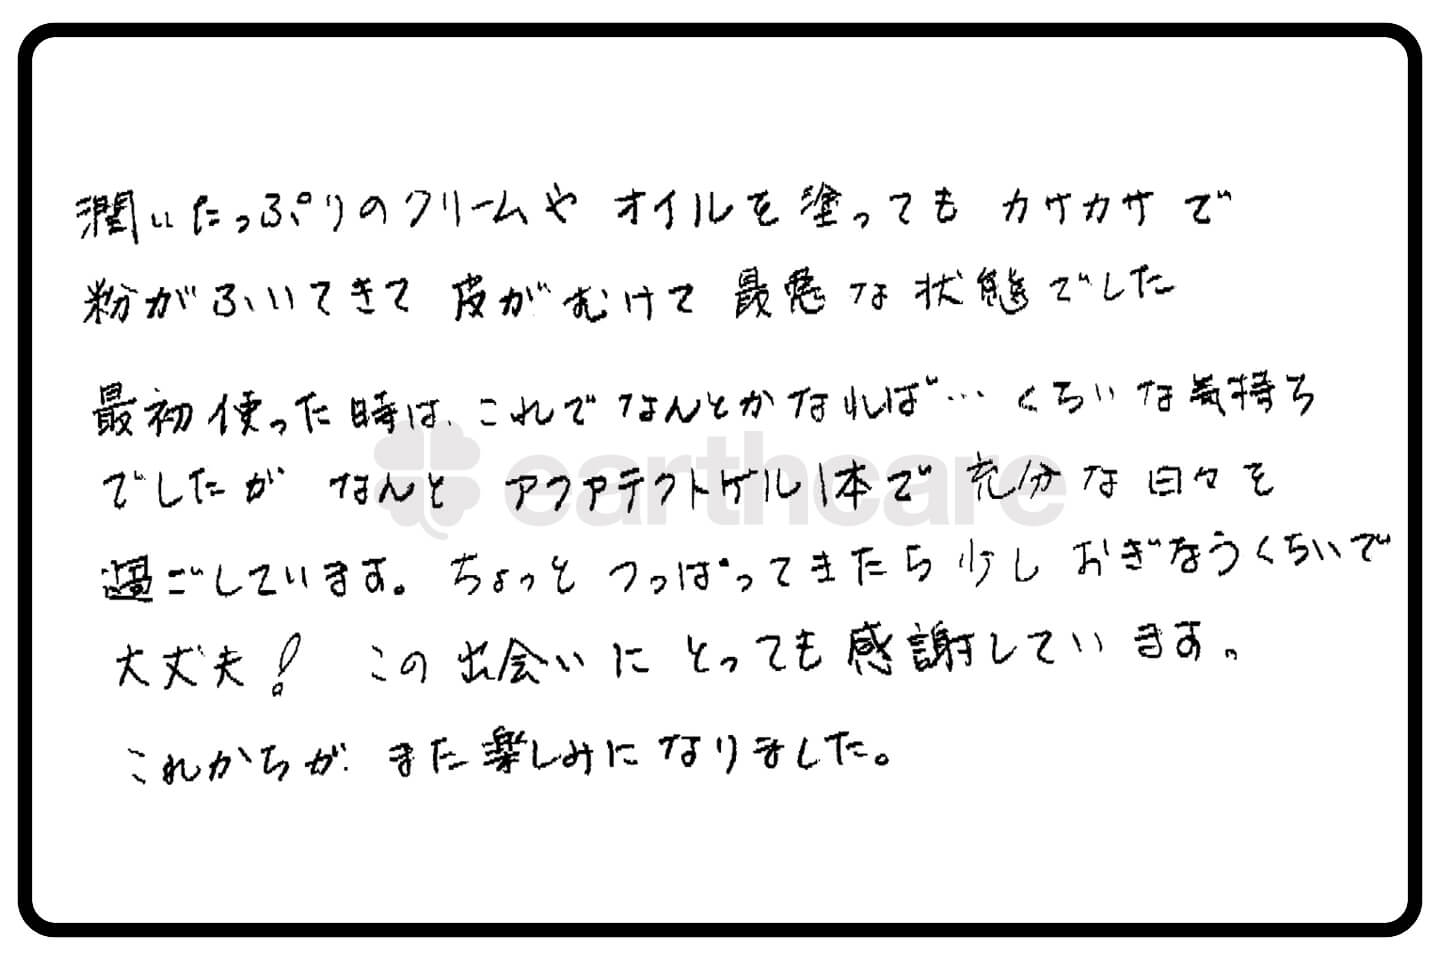 潤いたっぷりのクリームや オイルを塗っても カサカサで
粉がふいてきて 皮がむけて 最悪な状態でした
最初使った時は、これでなんとかなれば… くらいな気持ち
でしたが なんと アクアテクトゲル1本で 充分な日々を
過ごしています。ちょっと つっぱってきたら少し おぎなうくらいで
大丈夫! この出会いに とっても感謝しています。
これからが また楽しみになりました。
earthcare